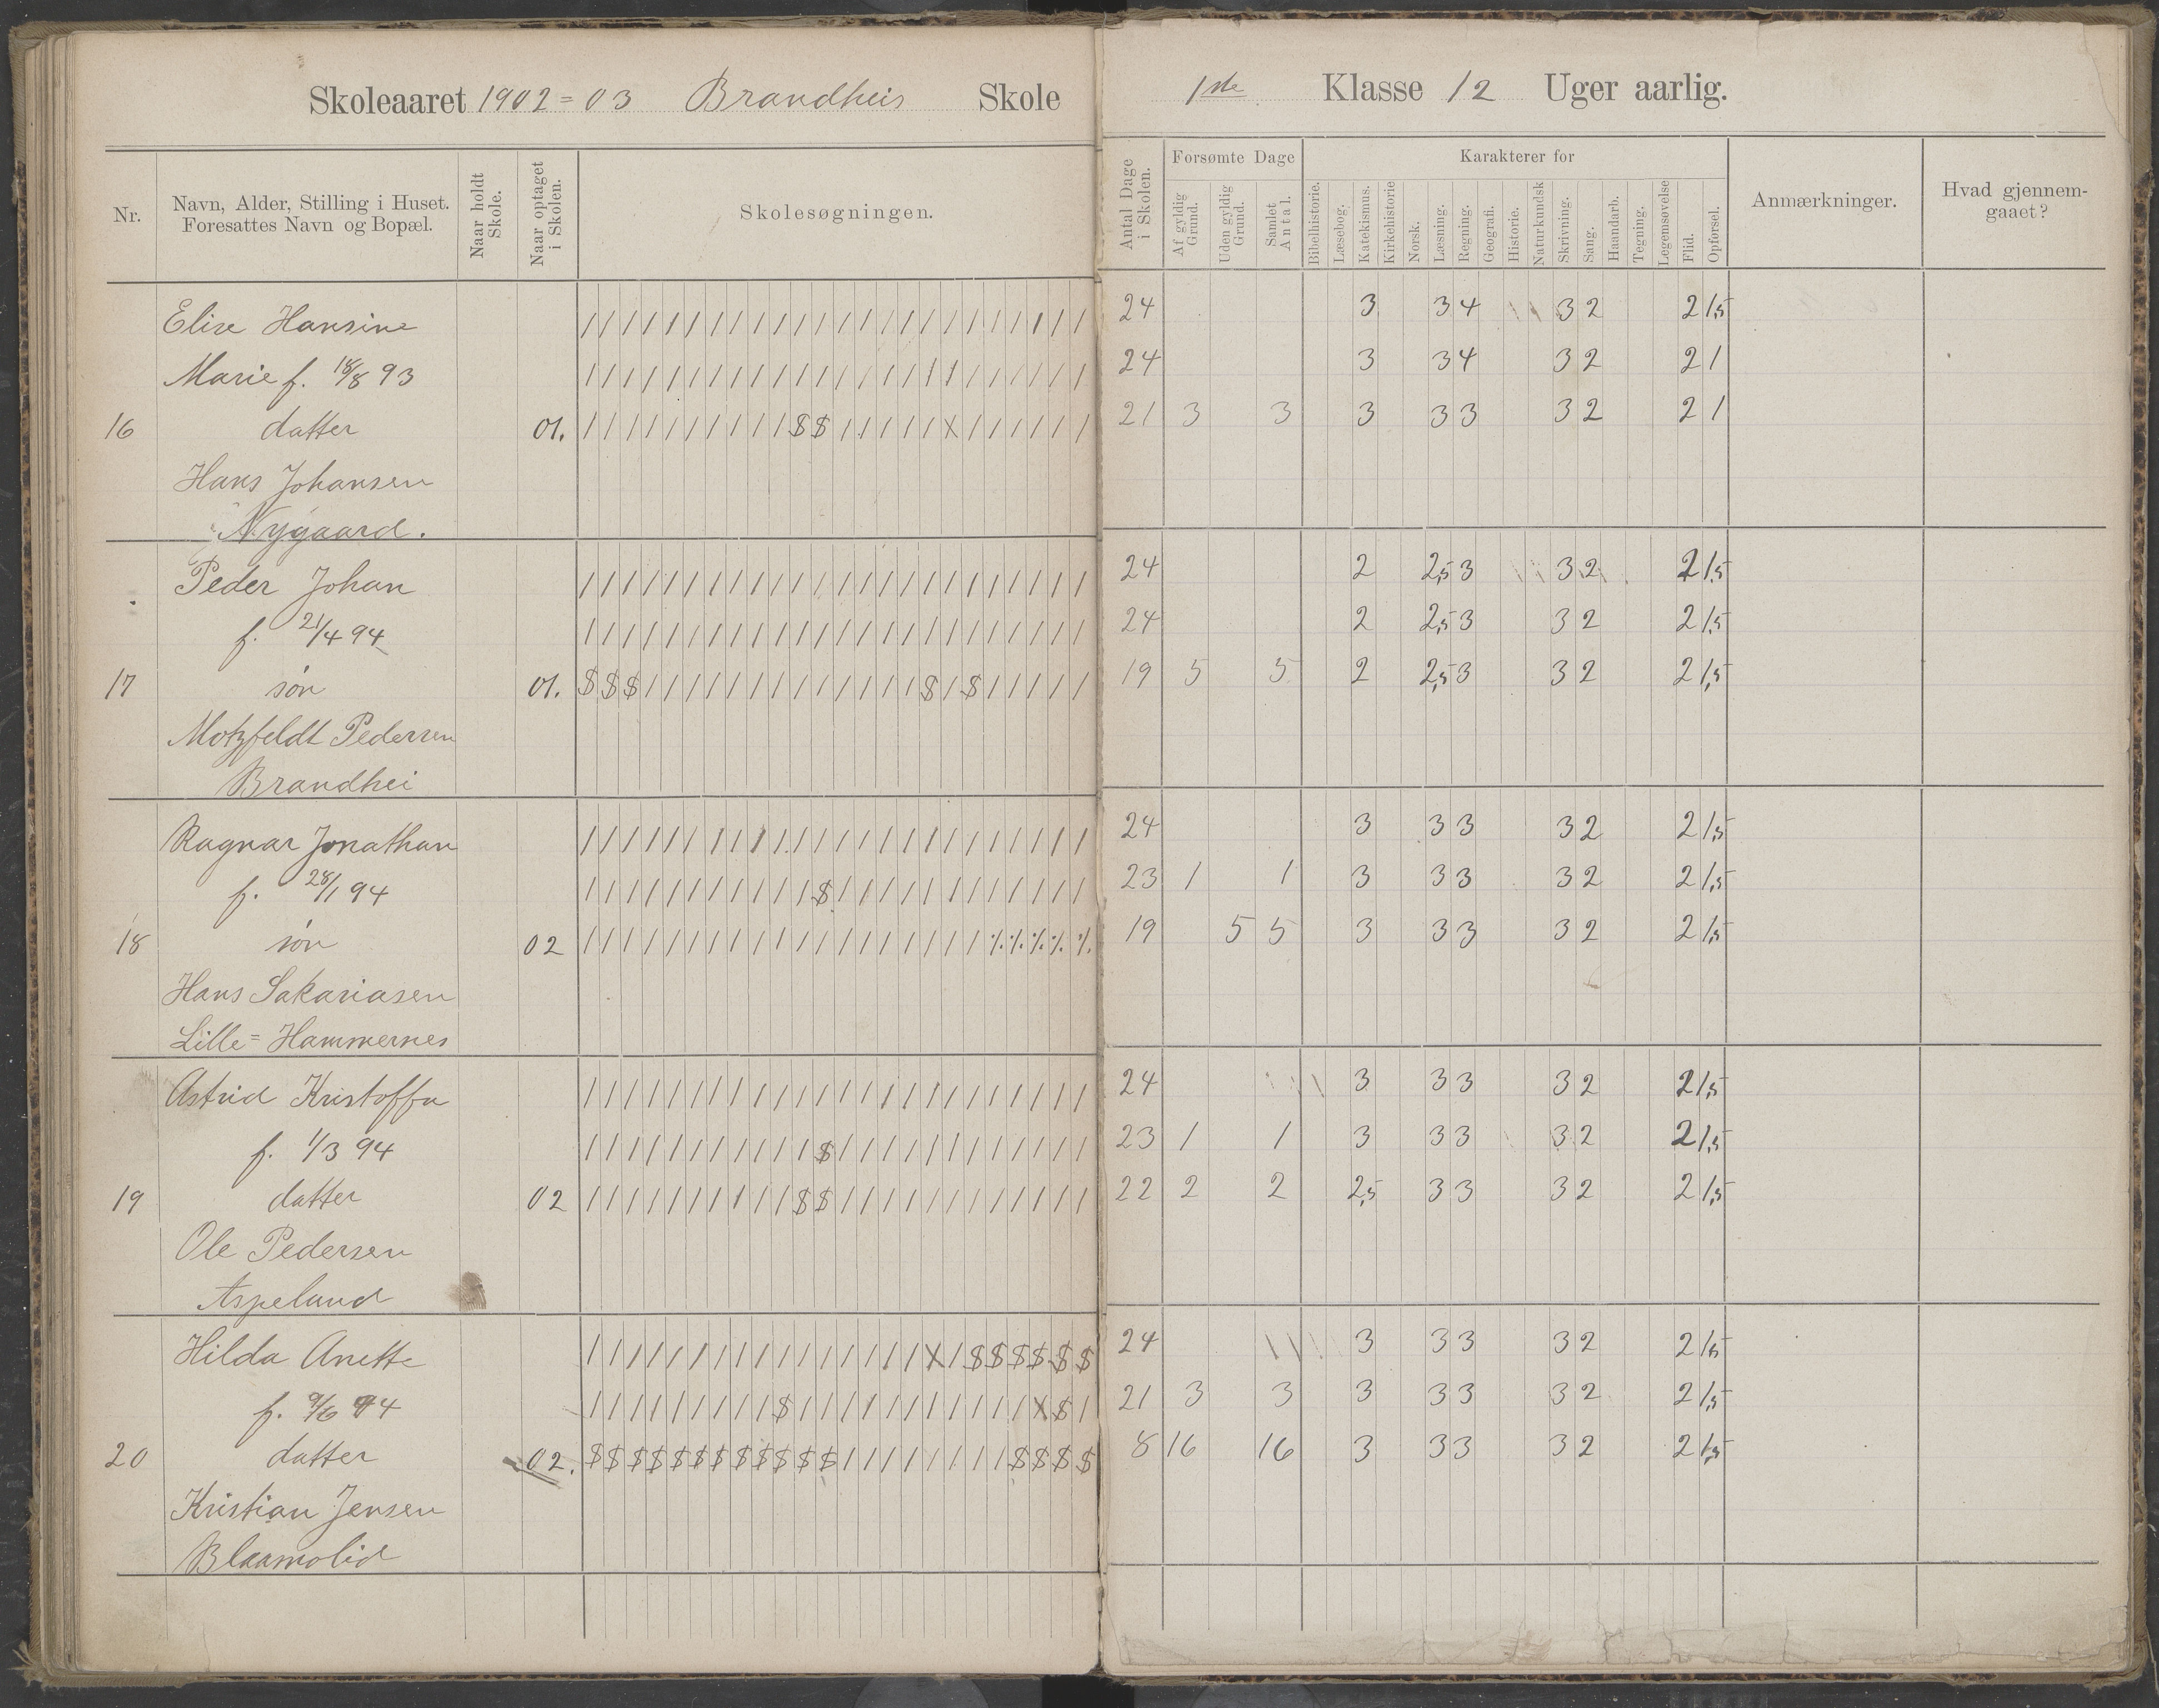 Skoleaaret 1902=03 Brandheis Skole
1ste Klasse 12 Uger aarlig.
Nr.
Navn, Alder, Stilling i Huset.
Foresattes Navn og Bopæl.
Naar holdt Skole.
Naar optaget i Skolen.
Skolesøgningen.
Antal Dage i Skolen.
Forsømte Dage
Af gyldig Grund.
Uden gyldig Grund.
Samlet Antal.
Karakterer for
Bibelhistorie.
Læsebog.
Katekismus.
Kirkehistorie
Norsk.
Læsning.
Regning.
Geografi.
Historie.
Naturkundsk
Skrivning.
Sang.
Haandarb.
Tegning.
Legemsøvelse
Flid.
Opførsel.
Anmærkninger.
Hvad gjennem-
gaaet?
Elise Hansine / / / / / / / / / / / / / / / / / / / / / / / / 24 3 3 4 3 2 2 1,5
Marie f. 18/8 93 / / / / / / / / / / / / / / / / / / / / / / / / 24 3 3 4 3 2 2 1
16 datter 01. / / / / / / / / / / $ $ / / / / / X / / / / / / 21 3 3 3 3 3 3 2 2 1
Hans Johansen
Nygaard.
Peder Johan / / / / / / / / / / / / / / / / / / / / / / / / 24 2 2,5 3 3 2 2 1,5
f. 21/4 94 / / / / / / / / / / / / / / / / / / / / / / / / 24 2 2,5 3 3 2 2 1,5
17 søn 01. $ $ $ / / / / / / / / / / / / / $ / $ / / / / / 19 5 5 2 2,5 3 3 2 2 1,5
Motzfeldt Pedersen
Brandhei
Ragnar Jonathan / / / / / / / / / / / / / / / / / / / / / / / / 24 3 3 3 3 2 2 1,5
f. 28/1 94 / / / / / / / / / / / $ / / / / / / / / / / / / 23 1 1 3 3 3 3 2 2 1,5
18 søn 02 / / / / / / / / / / / / / / / / / / / ٪ ٪ ٪ ٪ ٪ 19 5 5 3 3 3 3 2 2 1,5
Hans Sakariasen
Lille=Hammernes
Astrid Kristoffa / / / / / / / / / / / / / / / / / / / / / / / / 24 3 3 3 3 2 2 1,5
f. 1/3 94 / / / / / / / / / / / $ / / / / / / / / / / / / 23 1 1 3 3 3 3 2 2 1,5
19 datter 02 / / / / / / / / / / $ $ / / / / / / / / / / / / 22 2 2 2,5 3 3 3 2 2 1,5
Ole Pedersen
Aspelund
Hilda Anette / / / / / / / / / / / / / / / / X / $ $ $ $ $ $ 24 3 3 3 3 2 2 1,5
f. 9/6 94 / / / / / / / / / $ / / / / / / / / / / / X $ / 21 3 3 3 3 3 3 2 2 1,5
20 datter 02. $ $ $ $ $ $ $ $ $ $ $ $ / / / / / / / / $ $ $ $ 8 16 16 3 3 3 3 2 2 1,5
Kristian Jensen
Blaamolid